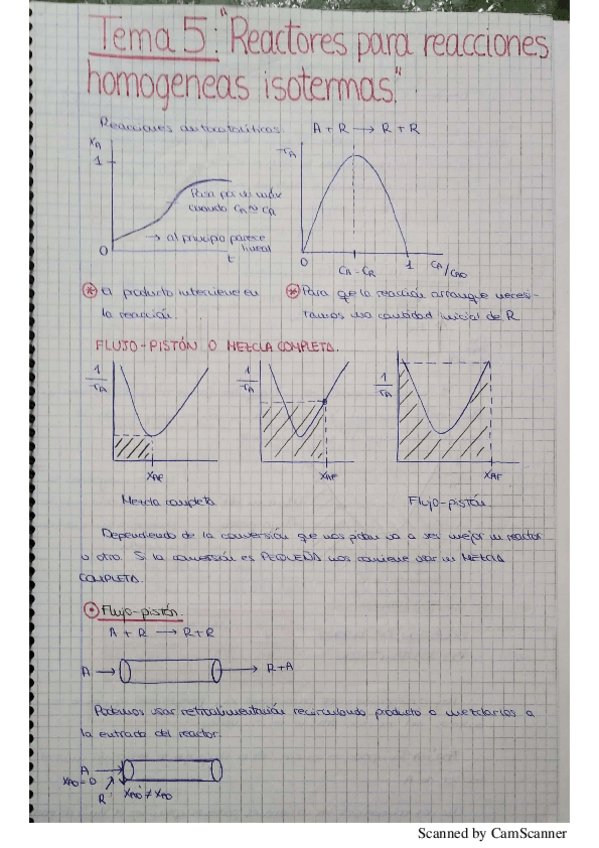 Tema 5: "Reactores para reacciones
homogeneas isotermas"
Reacciones autocatalíticas. A + R → R + R
XA
1
Para por ser máx
cuando CA ≈ CR
→ al principio parece
lineal
0
t
-rA
0
CA = CR
1
CA/CAO
* El producto interviene en
la reacción.
* Para que la reacción arranque necesi-
tamos una cantidad inicial de R
FLUJO-PISTÓN O MEZCLA COMPLETA.
1/rA
1/rA
1/rA
XAF
XAF
XAF
Mezcla completa
Flujo-pistón.
Dependiendo de la conversión que nos pidan va a ser mejor un reactor
u otro. Si la conversión es PEQUEÑA nos conviene usar un MEZCLA
COMPLETA.
Flujo-pistón.
A + R → R + R
A → → R+A
Podemos usar retroalimentación recirculando producto o mezclarlos a
la entrada del reactor
A →
XAO = 0
R
XAO' ≠ XAO
Scanned by CamScanner